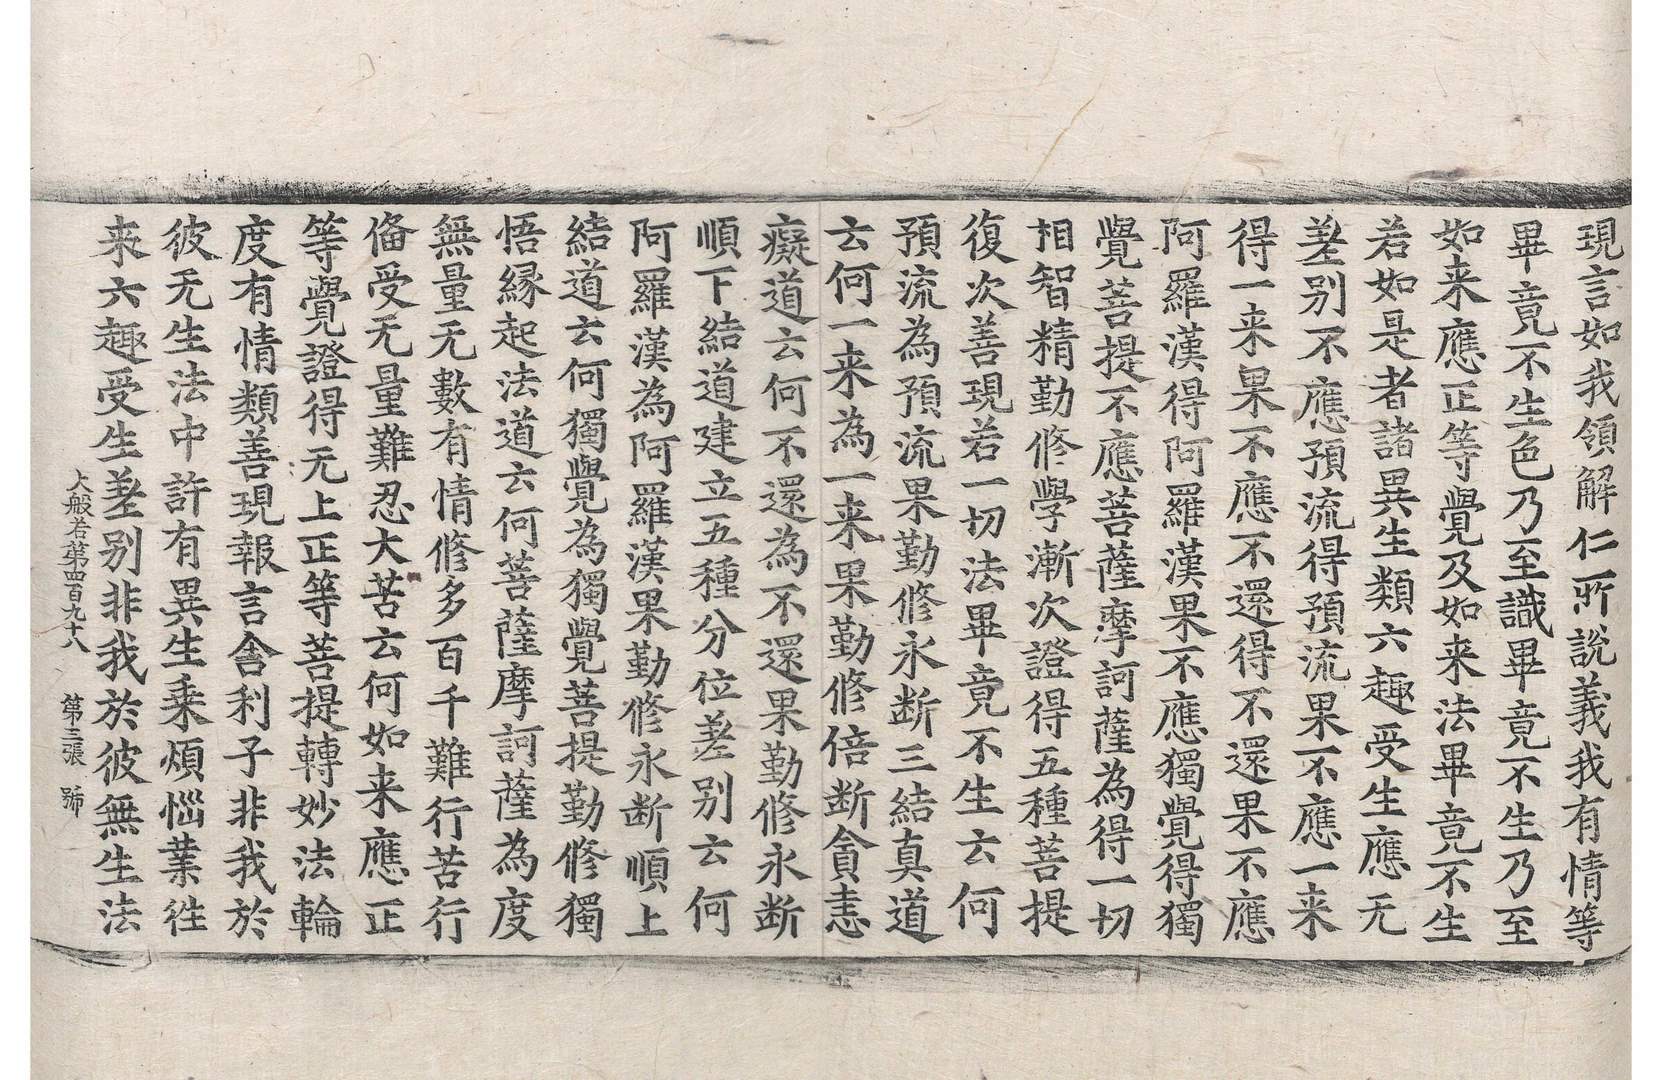 現言如我領解仁所說義我有情等
畢竟不生色乃至識畢竟不生乃至
如来應正等覺及如来法畢竟不生
若如是者諸異生類六趣受生應无
差别不應預流得預流果不應一来
得一来果不應不還得不還果不應
阿羅漢得阿羅漢果不應獨覺得獨
覺菩提不應菩薩摩訶薩為得一切
相智精勤修學漸次證得五種菩提
復次善現若一切法畢竟不生云何
預流為預流果勤修永断三結真道
云何一来為一来果勤修倍断貪恚
癡道云何不還為不還果勤修永断
順下結道建立五種分位差别云何
阿羅漢為阿羅漢果勤修永断順上
結道云何獨覺為獨覺菩提勤修獨
悟縁起法道云何菩薩摩訶薩為度
無量无數有情修多百千難行苦行
俻受无量難忍大苦云何如来應正
等覺證得无上正等菩提轉妙法輪
度有情類善現報言舎利子非我於
彼无生法中許有異生乗煩惱業徃
来六趣受生差别非我於彼無生法
大般若第四百九十八 第三張 號